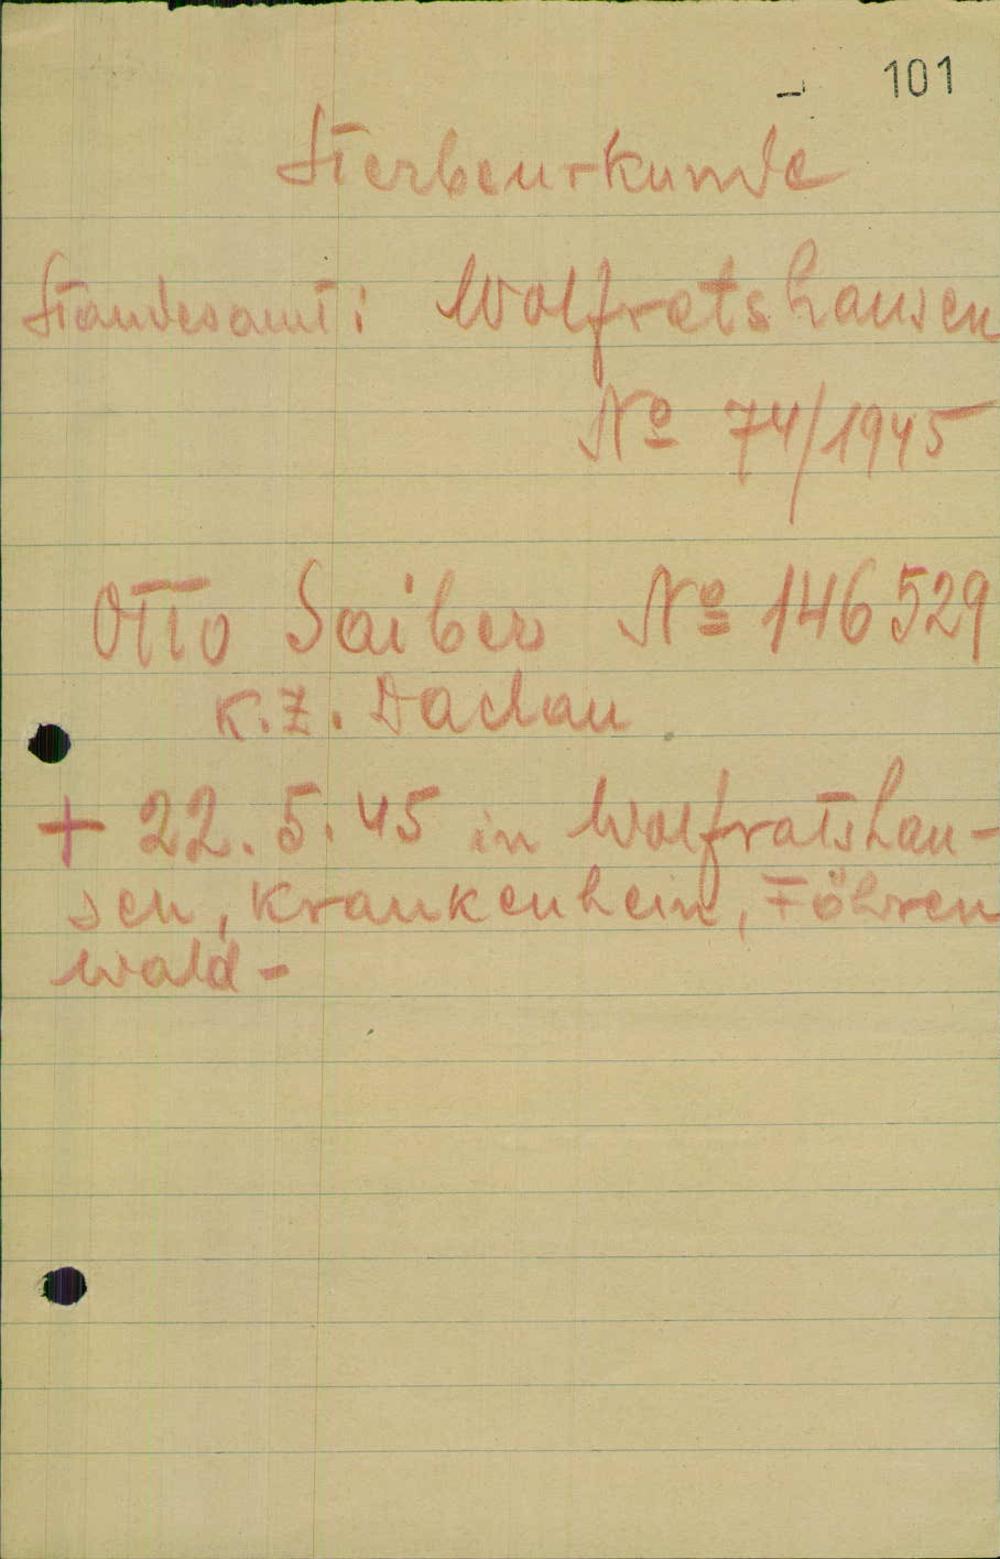 101
Sterbeurkunde
Standesamt: Wolfratshausen
Nº 74/1945
Otto Saiber Nº 146529
K.Z. Dachau.
+ 22.5.45 in Wolfratshau-
sen, Krankenheim, Föhren
wald-